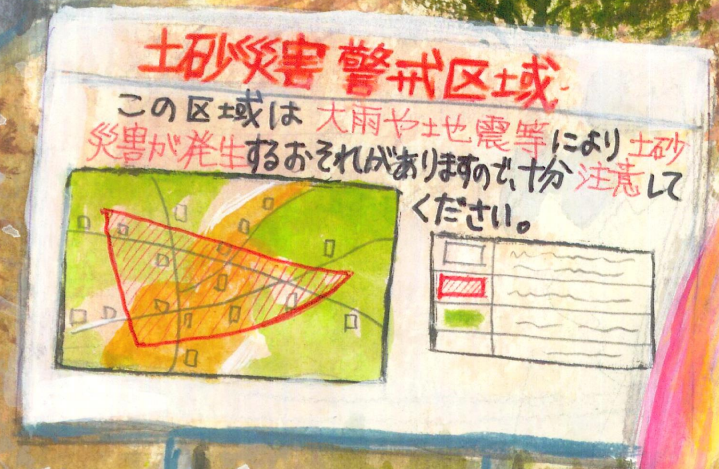 土砂災害 警戒区域
この区域は 大雨や地震等により土砂
災害が発生するおそれがありますので、十分注意して
ください。